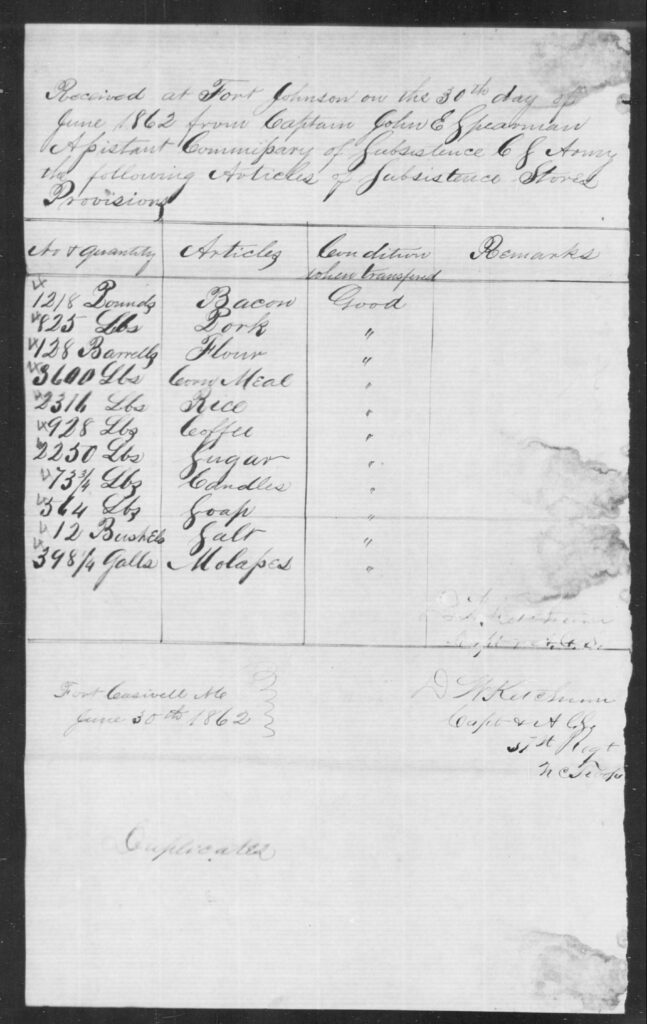 Received at Fort Johnson on the 30th day of
June 1862 from Captain John E Spearman
Assistant Commissary of Subsistence C S Army
the following Articles of Subsistence Stores
Provisions
No & quantity Articles Condition when transferd Remarks
1218 Pounds Bacon Good
825 Lbs Pork "
128 Barrells Flour "
3600 Lbs Corn Meal "
2316 Lbs Rice "
928 Lbs Coffee "
2250 Lbs Sugar "
73 3/4 Lbs Candles "
564 Lbs Soap "
12 Bushels Salt "
398 1/4 Galls Molasses "
Fort Caswell NC
June 30th 1862
D W Ketchum
Capt & A C S
51st Regt
N C Troops
Duplicates